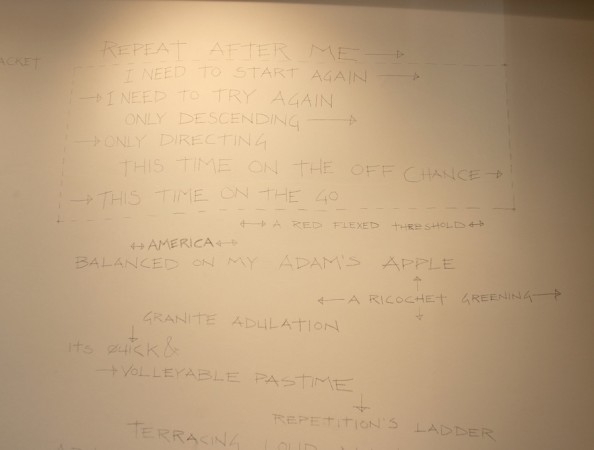 REPEAT AFTER ME →
ACKET
I NEED TO START AGAIN →
→ I NEED TO TRY AGAIN
ONLY DESCENDING →
→ ONLY DIRECTING
THIS TIME ON THE OFF CHANCE →
→ THIS TIME ON THE GO
↔ A RED FLEXED THRESHOLD ↔
↔ AMERICA ↔
BALANCED ON MY ADAM'S APPLE
← A RICOCHET GREENING →
GRANITE ADULATION
ITS QUICK &
→ VOLLEYABLE PASTIME
REPETITION'S LADDER
TERRACING LOUD